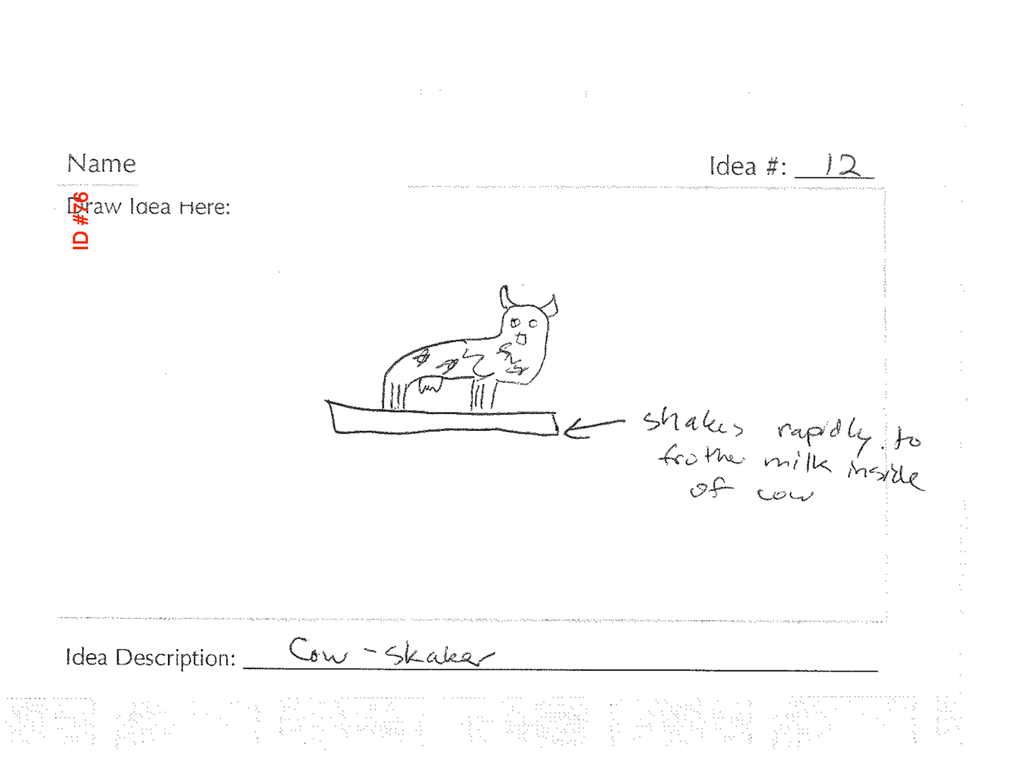 Name
Idea #: 12
ID #76
Draw Idea Here:
shakes rapidly to
frothe milk inside
of cow
Idea Description: Cow-shaker